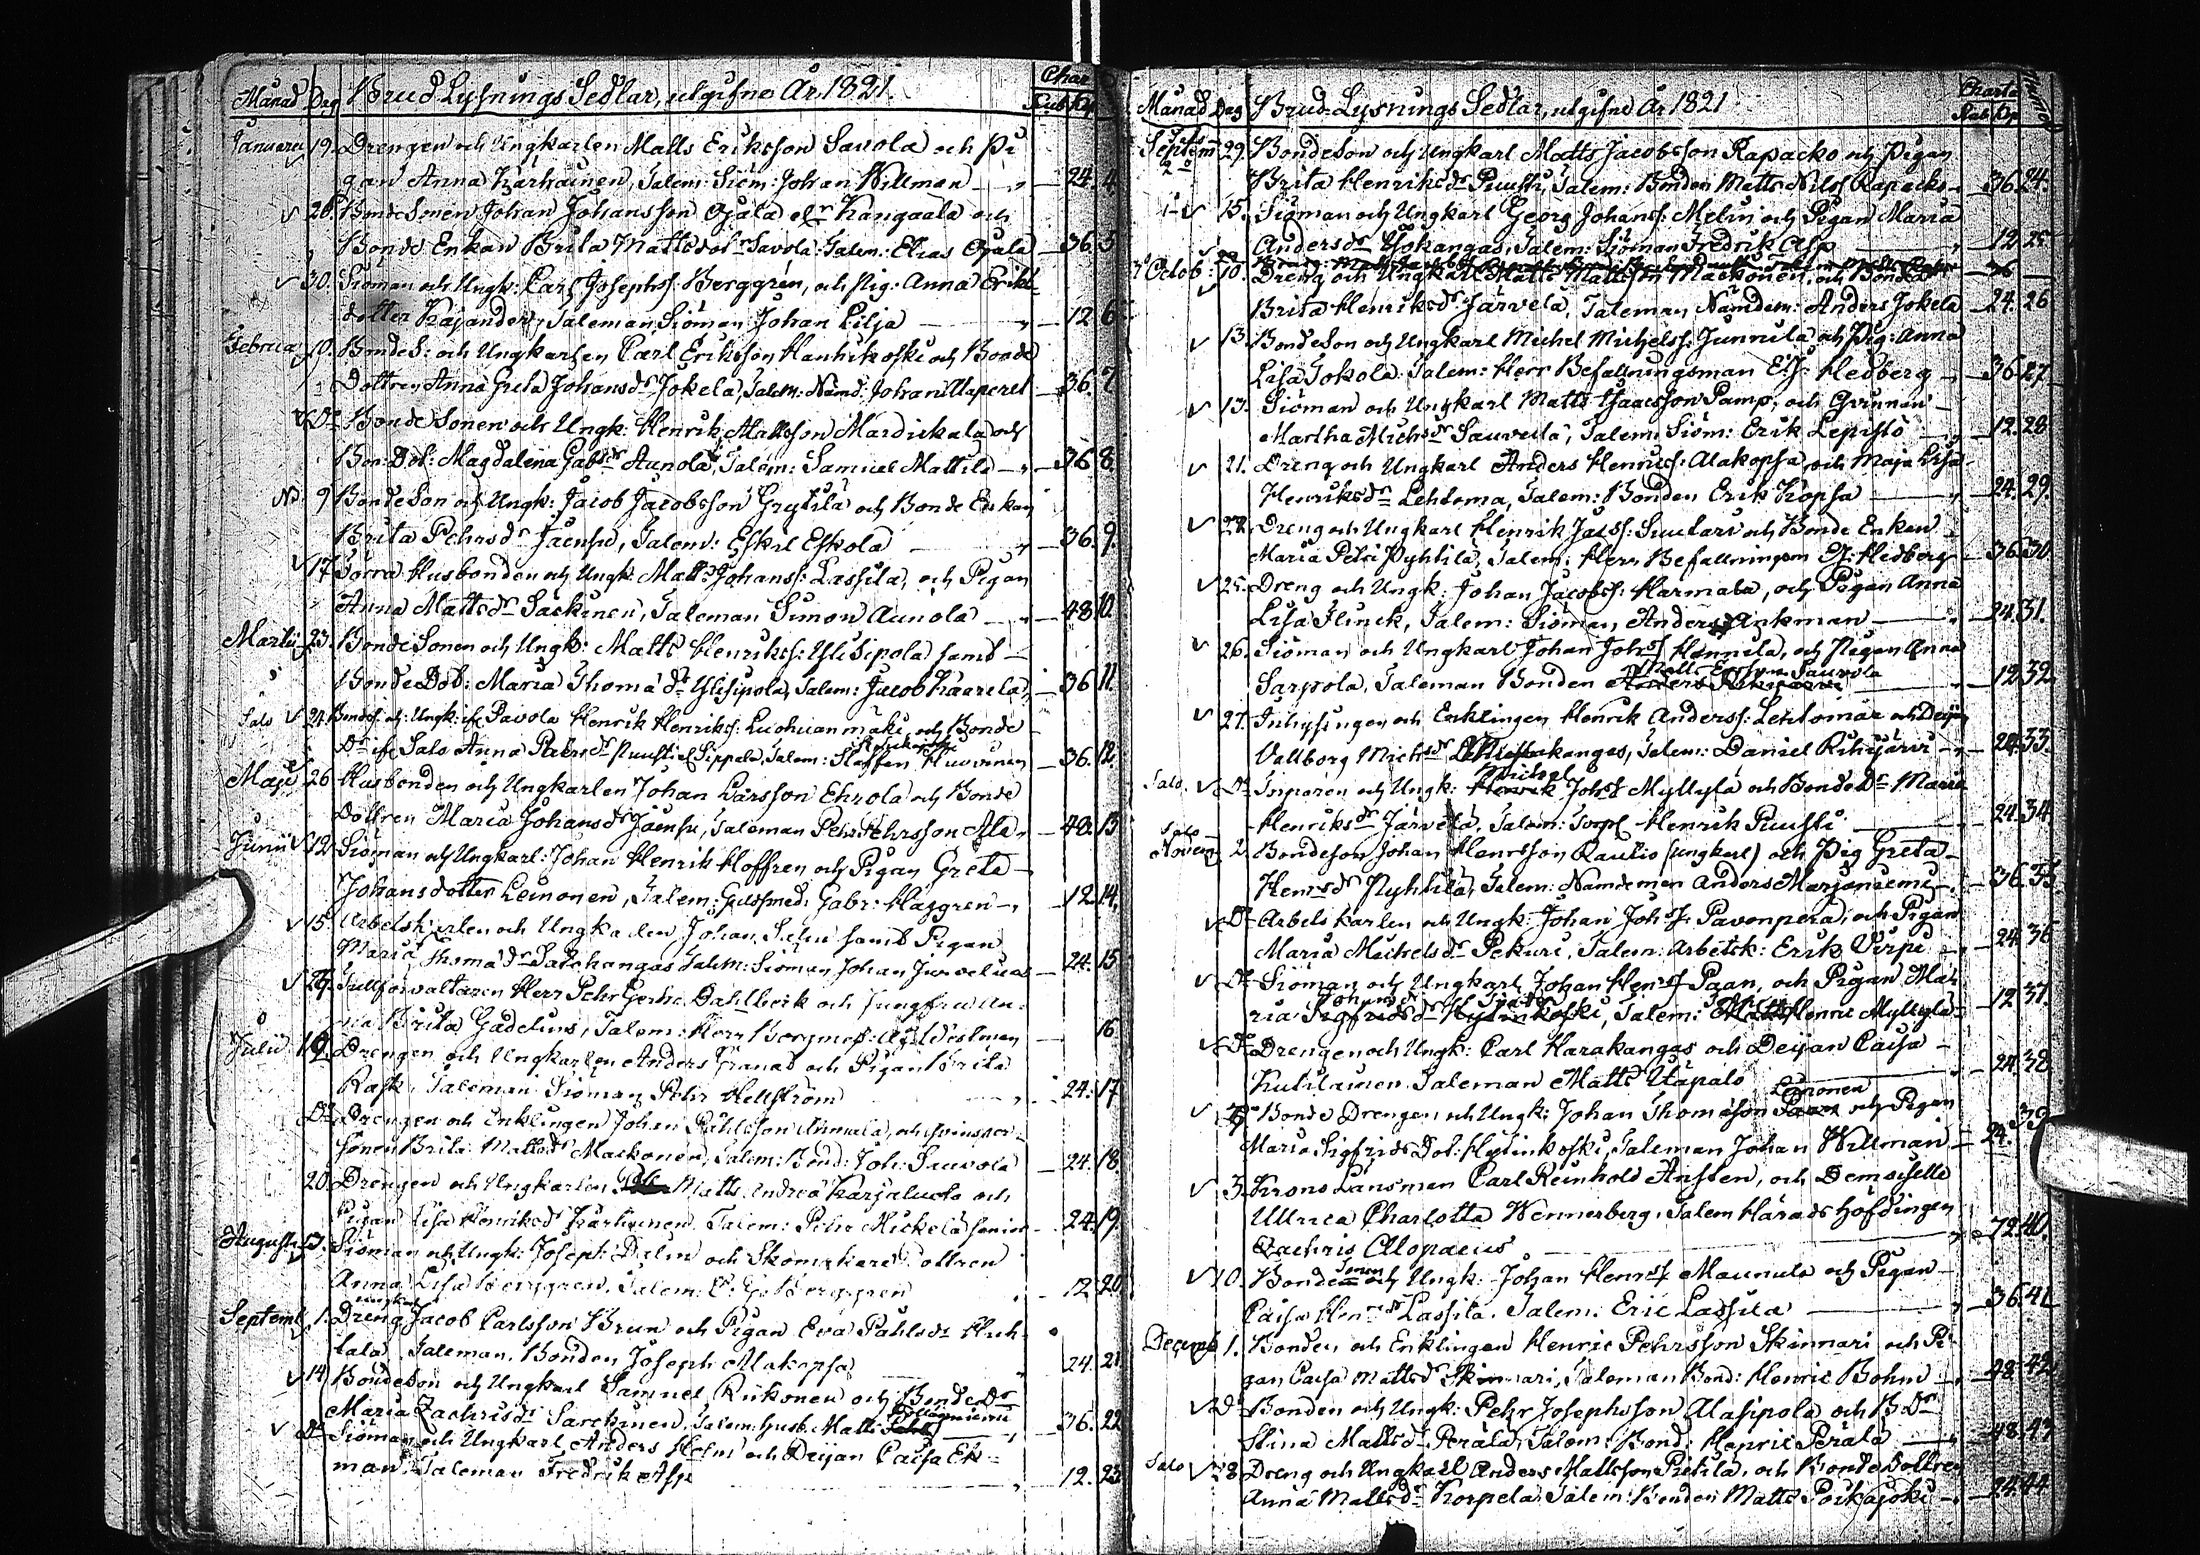 Månad Dag Brud Lysnings Sedlar, utgifne År 1821. Char:
Rub. Kp.
Januarii 19. Drengen och Ungkarlen Matts Eriksson Savola och Pi
gan Anna Karhainen, Talem: Siöm: Johan Willman 24. 4.
26. BondeSonen Johan Johansson Ojala elr Kangaala och
Bonde Enkan Brita Mattsdotr Savola. Talem: Elias Ojala 36. 5
30. Siöman och Ungk: Carl Josephs: Berggrén, och Pig: Anna Eriks
dotter Kajander, Taleman Siöman Johan Lilja 12 6
Februa 10. BondeS: och Ungkarlen Carl Eriksson Hanhikoski och Bonde
Dottren Anna Greta Johansdr Jokela, Talem: Nämd: Johan Ulaperet 36. 7.
Do BondeSonen och Ungk: Henrik Mattsson Mardickala och
Bon: Dot: Magdalena Gabsdr Aunola, Talem: Samuel Mattila 36 8.
9 BondeSon och Ungk: Jacob Jacobsson Grytilä och Bonde Enkan
Brita Pehrsdr Jaensu, Talem: Eskel Eskola 36. 9.
17 Torra Husbonden och Ungk: Matts Johanss: Lassila, och Pigan
Anna Mattsdr Sarkinen, Taleman Simon Aunola 48 10.
Martii 23. BondeSonen och Ungk: Matts Henrikss: YliSipola samt
BondeDot: Maria Thomædr Ylisipola, Talem: Jacob Kaarela, 36 11.
Salo 24 Bondes: och Ungk: ifr Pavola Henrik Henrikss: Luohuan mäki och Bonde
Dr ifr Salo Anna Pehrsdr Puusti elr Sippala, Talem: Staffen Huovinen 36. 12.
Maji 26 Husbonden och Ungkarlen Johan Larsson Ehrola och Bonde
Dottren Maria Johansdr Jaensu, Taleman Pehr Pehrsson Ala 48. 13
Junii 12. Siöman och Ungkarl: Johan Henrik Hoffren och Pigan Greta
Johansdotter Leinonen, Talem: Gulsmed: Gabr: Haggren 12. 14.
15. Arbetskarlen och Ungkarlen Johan Salin samt Pigan
Maria Thomædr Salokangas Talem: Siöman Johan Jurvelius 24. 15
29. Tullförvaltaren Herr Pehr Gerh: Dahlbeck och Jungfru An
na Brita Gadelius, Talem: Herr Borgmest: Westman 16
Julii 19. Drengen och Ungkarlen Anders Granat och Pigan Brita
Rask. Taleman Siöman Pehr Hellström 24. 17.
Do Drengen och Enklingen Johan Påhlsson Annala, och qvinsper-
sonen Brita Mattsdr Markonen, Talem: Bond: Joh: Sauvola 24. 18.
20. Drengen och Ungkarlen Matts Andreæ Karjaluoto och
Pigan Lisa Henriksdr Karhunen. Talem: Pehr Mickelä senior 24. 19.
Augusti 3. Siöman och Ungk: Joseph Dalin och Skomakare Dottren
Anna Lisa Berggren, Talem: C: G: Berggren 12 20.
Septemb 1. Dreng Ungkarl Jacob Carlsson Brun och Pigan Eva Påhlsdr Huh-
tala. Taleman. Bonden Joseph Alakopsa 24. 21
14 BondeSon och Ungkarl Samuel Riikonen och BondeDr
Maria Zachrisdr Sarckinen, Talem: Husb. Matts 36. 22
Do Siöman och Ungkarl Anders Holm och Deijan Caisa Ek-
man. Taleman Fredrik Asp 12. 23
Månad Dag Brud-Lysnings Sedlar, utgifne År 1821 Charta
Rub. Kp Numro
Septem 29. BondeSon och Ungkarl Matts Jacobsson Rapacko och Pigan
Brita Henriksdr Puusti, Talem: Bonden Matts Nilss Rapacko 36 24.
15. Siöman och Ungkarl Georg Johanss: Melin och Pigan Maria
Andersdr Ylikangas, Talem: Siöman Fredrik Asp 12 25
Octob: 10. Dreng och Ungkarl Matts Mattsson Mackonen, och Bonde Dr 36
Brita Henriksdr Järvelä, Taleman Nämdem: Anders Jokela 24. 26
13. BondeSon och Ungkarl Michel Michelss: Junnila och Pig: Anna
Lisa Tokola. Talem: Herr Befallningsman El: Hedberg 36 27
13. Siöman och Ungkarl Matts Isaacsson Pamp, och Qvinnan
Martha Michsdr Sauvula, Talem: Siöm: Erik Lepistö 12. 28
21. Dreng och Ungkarl Anders Henrics: Alakopsa, och Maja Lisa
Henriksdr Lehtoma, Talem: Bonden Erik Kopsa 24. 29.
22. Dreng och Ungkarl Henrik Jacs: Suutari och Bonde Enkan
Maria Petri Pyhtilä, Talem: Herr Befallningsm El: Hedberg 36 30.
25. Dreng och Ungk: Johan Jacobss: Harmala, och Pigan Anna
Lisa Flinck, Talem: Siöman Anders Ankman 24. 31.
26. Siöman och Ungkarl Johan Johss Hannila, och Pigan Anna
Sarpola, Taleman Bonden Matts Erssson Sauvola 12 32
27. Inhysingen och Enklingen Henrik Anderss: Lehtomar och Deijan
Vallborg Michsdr kangas, Talem: Daniel Rihijärvi 24. 33.
Salo. Do Torparen och Ungk: Michel Johss Myllylä och BondeDr Maria
Henriksdr Järvelä. Talem: Torpr Henrik Puusti 24. 34
Salo
Novem 2. Bondeson Johan Henrsson Rautio (ungkarl) och Pig Greta
Henrsdr Pyhtilä, Talem: Nämdeman Anders Marjaniemi 36. 35
Do Arbetskarlen och Ungk: Johan Johss: Pavonpera, och Pigan
Maria Michelsdr Pekuri, Talem: Arbetsk: Erik Virpi 24. 36
Do Siöman och Ungkarl Johan Henrss Paan, och Pigan Ma-
ria, Talem: Henric Myllylä 12 37.
Do Drengen och Ungk: Carl Harakangas och Deijan Caisa
Kuhlainen. Taleman Matts Utapalo 24. 38
Do Bonde Drengen och Ungk: Johan Thomæson Leinonen och Pigan
Maria Sigfrids Dot: Hylinkoski, Taleman Johan Willman 24. 39
3. Krono Länsman Carl Reinhold Ansten, och Demoiselle
Ullrica Charlotta Wennerberg, Talem Härads Höfdingen
Zachris Alopaeus 72. 40.
10. BondeSonen och Ungk: Johan Henrss Maunula och Pigan
Caisa Henrsdr Lassila. Talem: Eric Lassila 36. 41
Decemb 1. Bonden och Enklingen Henric Pehrsson Skinnari och Pi-
gan Caisa Mattsdr Skinnari, Taleman Bond: Henric Bohm 48. 42
Do Bonden och Ungk: Pehr Josephsson Alasipola och BDr
Stina Mattsdr Perälä, Talem: Bond: Henric Perälä 48. 43
Salo 8 Dreng och Ungkarl Anders Mattsson Pietilä, och Bonde Dottren
Anna Mattsdr Korpela, Talem: Bonden Matts Poikajoki 24. 44